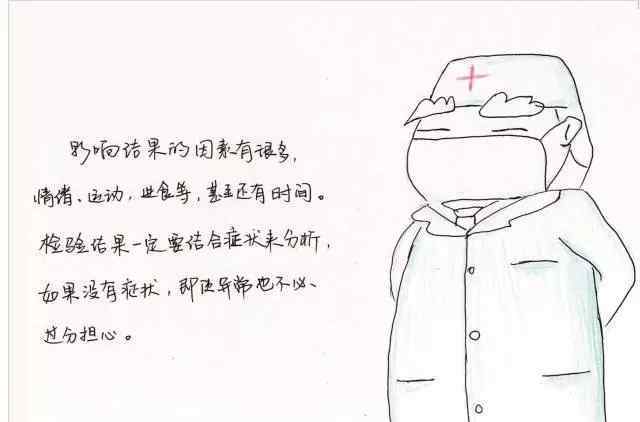 影响结果的因素有很多,
情绪、运动,进食等,甚至还有时间。
检验结果一定要结合症状来分析,
如果没有症状,即使异常也不必、
过分担心。